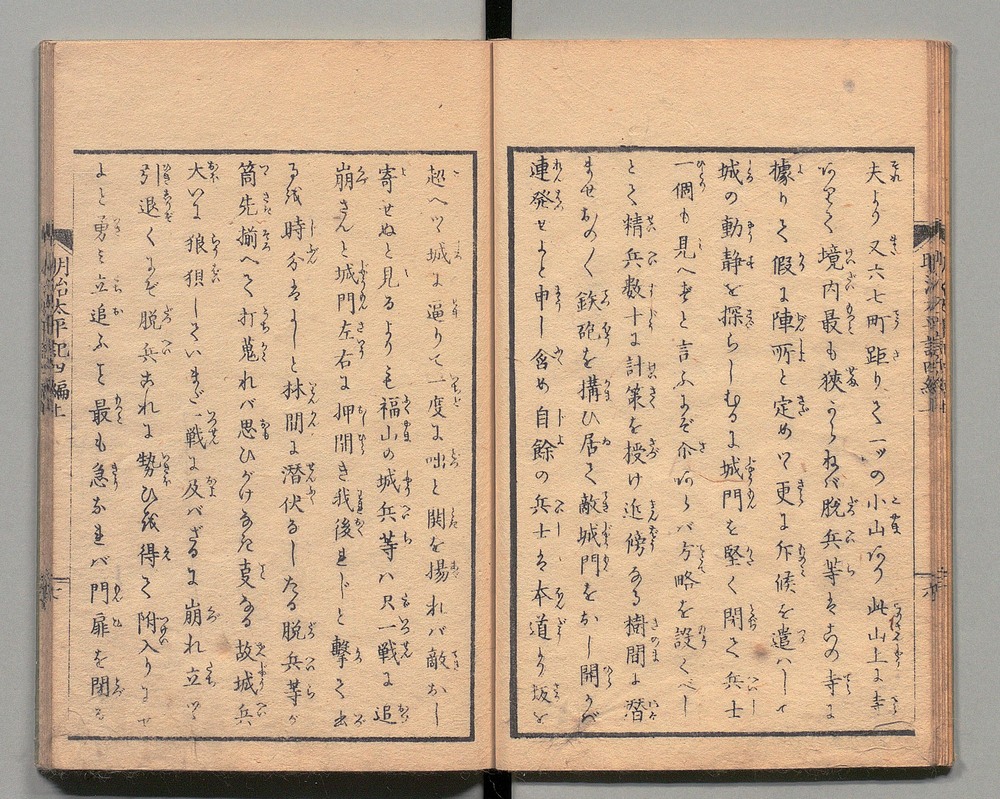 夫より又六七町距りて一ッの小山あり此山上に寺
ありて境内最も狭からねバ脱兵等ハこの寺に
據りて假に陣所と定めつ更に斥候を遣ハして
城の動静を探らしむるに城門を堅く閉て兵士
一個も見へずと言ふにぞ然あらバ方略を設くべし
とて精兵数十に計策を授け近傍なる樹間に潜
ませおの〱鉄砲を搆ひ居て敵城門をおし開かバ
連発せよと申し含め自餘の兵士ハ本道より坂を
超へつ城に逼りて一度に咄と鬨を揚れバ敵おし
寄せぬと見るよりも福山の城兵等ハ只一戦に追
崩さんと城門左右に押開き我後れじと撃て出
る時分ハよしと林間に潜伏なしたる脱兵等が
筒先揃へて打蒐れバ思ひがけなき事なる故城兵
大いに狼狽していまだ一戦に及バざるに崩れ立つ
引退くにぞ脱兵これに勢ひ得て附入りにせ
よと勇ミ立追ふこと最も急なれバ門扉を閉る
明治太平記四編上